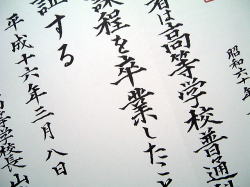 昭和六十年
者は高等学校普通
課程を卒業したこと
証する
平成十六年三月八日
等学校長山